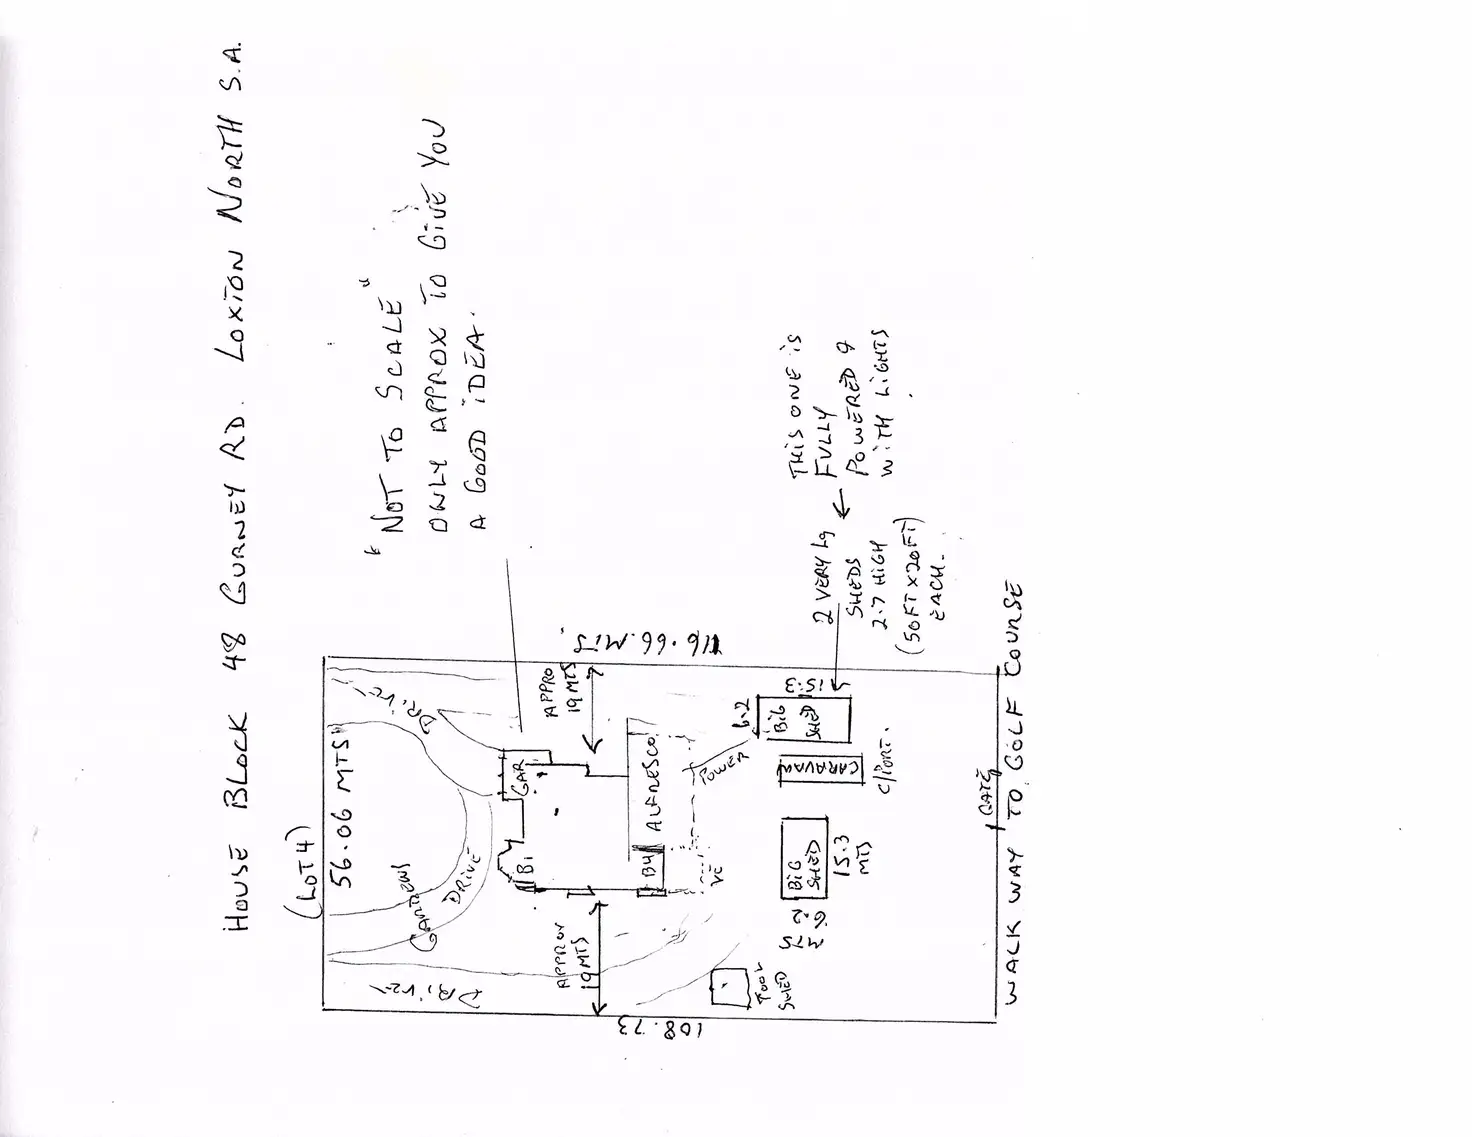 HOUSE BLOCK 48 GURNEY RD. LOXTON NORTH S.A.
(LOT 4)
"NOT TO SCALE"
ONLY APPROX TO GIVE YOU
A GOOD IDEA.
56.06 MTS
DRIVE
GARDENS
DRIVE
DRIVE
116.66 MTS.
108.73
APPRO
19 MTS
APPROX
19 MTS
GAR
B1
B4
ALFRESCO
POWER
6.2
BIG
SHED
15.3
CARAVAN
C/PORT.
BIG
SHED
15.3
MTS
6.2
MTS
TOOL
SHED
2 VERY Lg
SHEDS
2.7 HIGH
(50FT X 20FT)
EACH.
THIS ONE IS
FULLY
POWERED &
WITH LIGHTS
GATE
WALK WAY TO GOLF COURSE